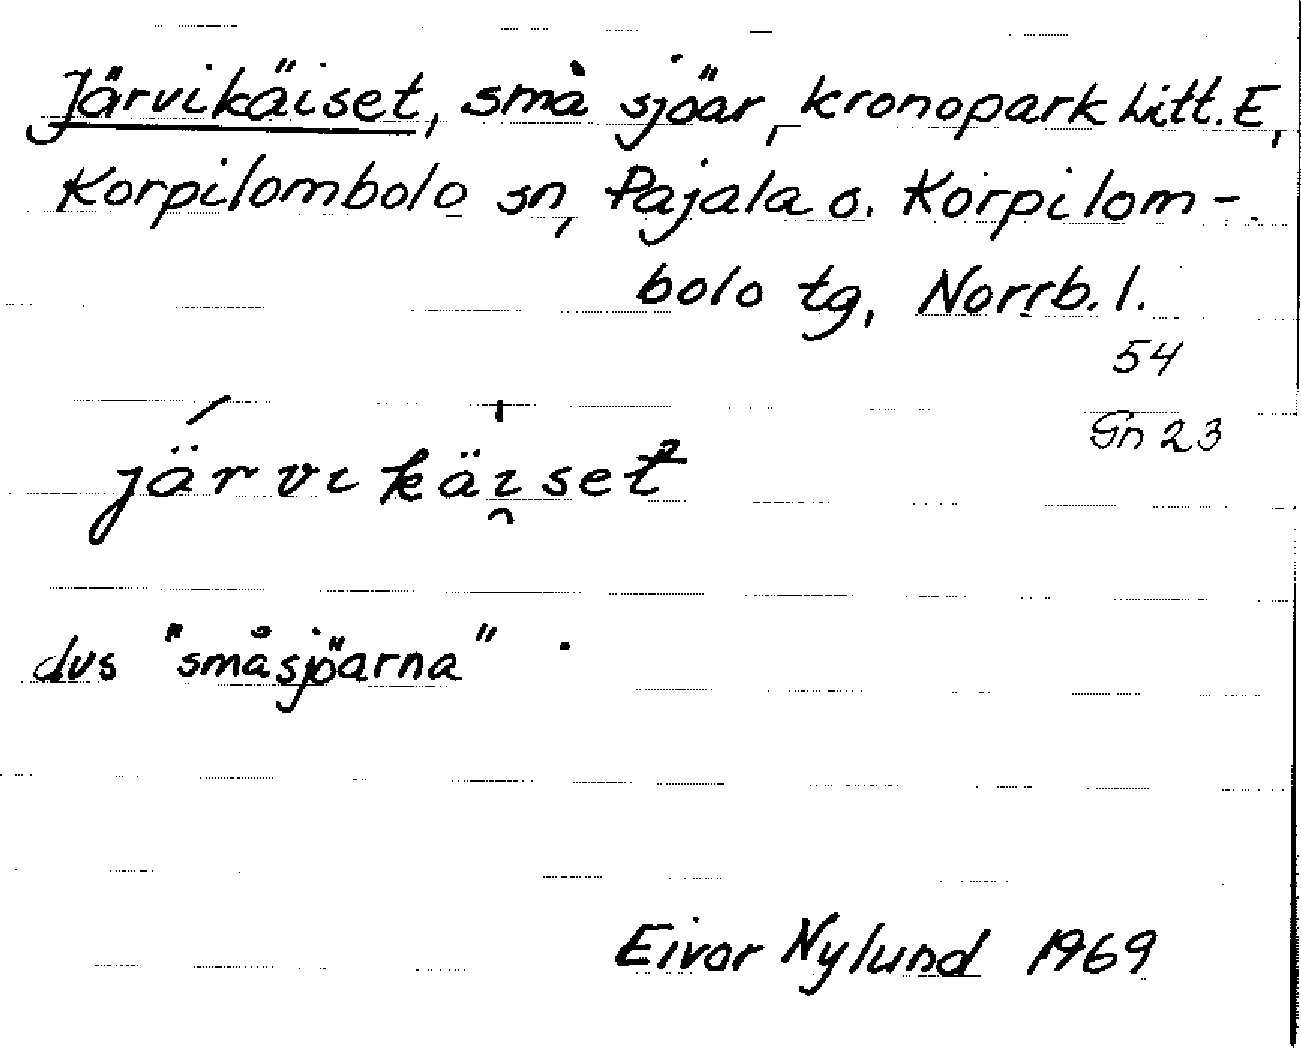 Järvikäiset, små sjöar, kronopark Litt. E,
Korpilombolo sn, Pajala o. Korpilom-
bolo tg, Norrb. l.
54
Gn 23
järvikäi̯set
dvs "småsjöarna".
Eivor Nylund 1969